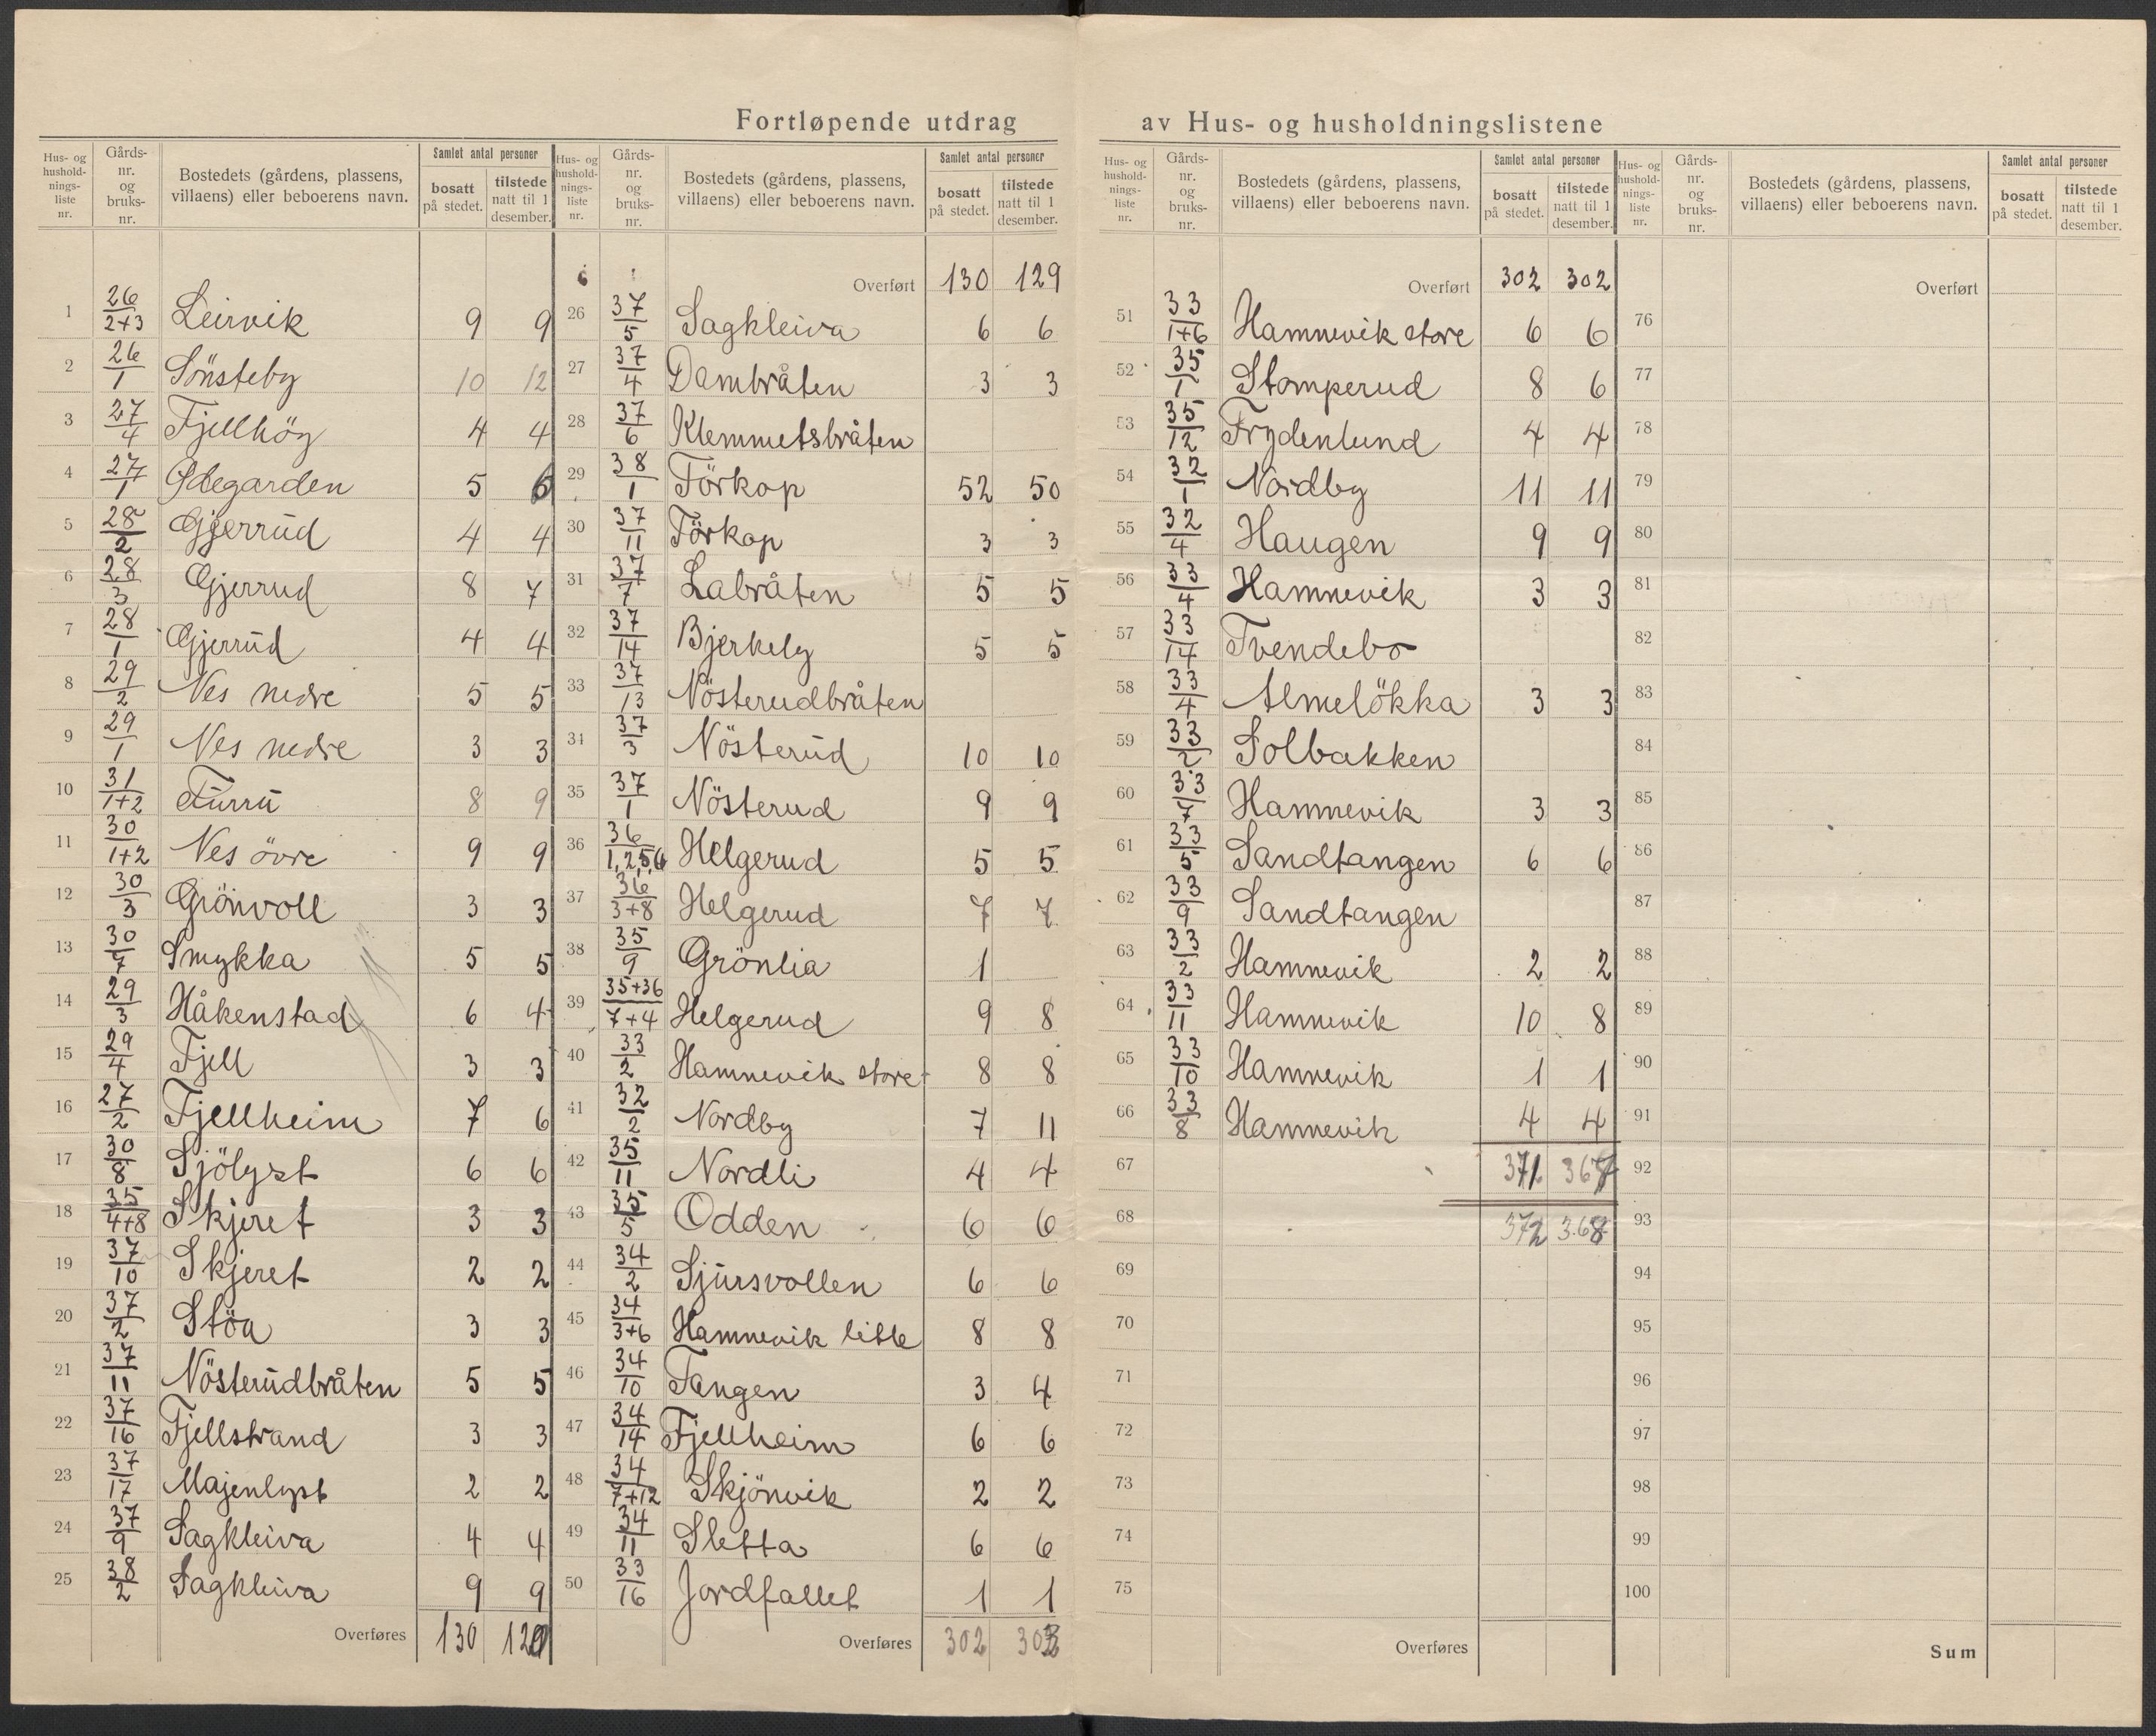 Fortløpende utdrag av Hus- og husholdningslistene
Hus- og hushold-nings-liste nr. | Gårds-nr. og bruks-nr. | Bostedets (gårdens, plassens, villaens) eller beboerens navn. | Samlet antal personer | bosatt på stedet. | tilstede natt til 1 desember.
1 26/2+3 Leirvik 9 9
2 26/1 Sönsteby 10 12
3 27/4 Fjellhög 4 4
4 27/1 Ødegarden 5 6
5 28/2 Gjerrud 4 4
6 28/3 Gjerrud 8 7
7 28/1 Gjerrud 4 4
8 29/2 Nes nedre 5 5
9 29/1 Nes nedre 3 3
10 31/1+2 Furru 8 9
11 30/1+2 Nes övre 9 9
12 30/3 Grönvoll 3 3
13 30/7 Smykka 5 5
14 29/3 Håkenstad 6 4
15 29/4 Fjell 3 3
16 27/2 Fjellheim 7 6
17 30/8 Sjölyst 6 6
18 35/4+8 Skjeret 3 3
19 37/10 Skjeret 2 2
20 37/2 Stöa 3 3
21 37/11 Nösterudbråten 5 5
22 37/16 Fjellstrand 3 3
23 37/17 Majenlyst 2 2
24 37/9 Sagkleiva 4 4
25 38/2 Sagkleiva 9 9
Overføres 130 129
Hus- og hushold-nings-liste nr. | Gårds-nr. og bruks-nr. | Bostedets (gårdens, plassens, villaens) eller beboerens navn. | Samlet antal personer | bosatt på stedet. | tilstede natt til 1 desember.
Overført 130 129
26 37/5 Sagkleiva 6 6
27 37/4 Dambråten 3 3
28 37/6 Klemmetsbråten
29 38/1 Förkop 52 50
30 37/11 Förkop 3 3
31 37/7 Labråten 5 5
32 37/14 Bjerkely 5 5
33 37/13 Nösterudbråten
34 37/3 Nösterud 10 10
35 37/1 Nösterud 9 9
36 36/1,2,5,6 Helgerud 5 5
37 36/3+8 Helgerud 7 7
38 35/9 Grönlia 1
39 35+36/7+4 Helgerud 9 8
40 33/2 Hamnevik store 8 8
41 32/2 Nordby 7 11
42 35/11 Nordli 4 4
43 35/5 Odden 6 6
44 34/2 Sjursvollen 6 6
45 34/3+6 Hamnevik litle 8 8
46 34/10 Tangen 3 4
47 34/14 Fjellheim 6 6
48 34/7+12 Skjönvik 2 2
49 34/11 Sletta 6 6
50 33/16 Jordfallet 1 1
Overføres 302 302
Hus- og hushold-nings-liste nr. | Gårds-nr. og bruks-nr. | Bostedets (gårdens, plassens, villaens) eller beboerens navn. | Samlet antal personer | bosatt på stedet. | tilstede natt til 1 desember.
Overført 302 302
51 33/1+6 Hamnevik store 6 6
52 35/1 Stomperud 8 6
53 35/12 Frydenlund 4 4
54 32/1 Nordby 11 11
55 32/4 Haugen 9 9
56 33/4 Hamnevik 3 3
57 33/14 Tvendebo
58 33/4 Almelökka 3 3
59 33/2 Solbakken
60 33/7 Hamnevik 3 3
61 33/5 Sandtangen 6 6
62 33/9 Sandtangen
63 33/2 Hamnevik 2 2
64 33/11 Hamnevik 10 8
65 33/10 Hamnevik 1 1
66 33/8 Hamnevik 4 4
67 371 367
68 372 368
69
70
71
72
73
74
75
Overføres
Hus- og hushold-nings-liste nr. | Gårds-nr. og bruks-nr. | Bostedets (gårdens, plassens, villaens) eller beboerens navn. | Samlet antal personer | bosatt på stedet. | tilstede natt til 1 desember.
Overført
76
77
78
79
80
81
82
83
84
85
86
87
88
89
90
91
92
93
94
95
96
97
98
99
100
Sum